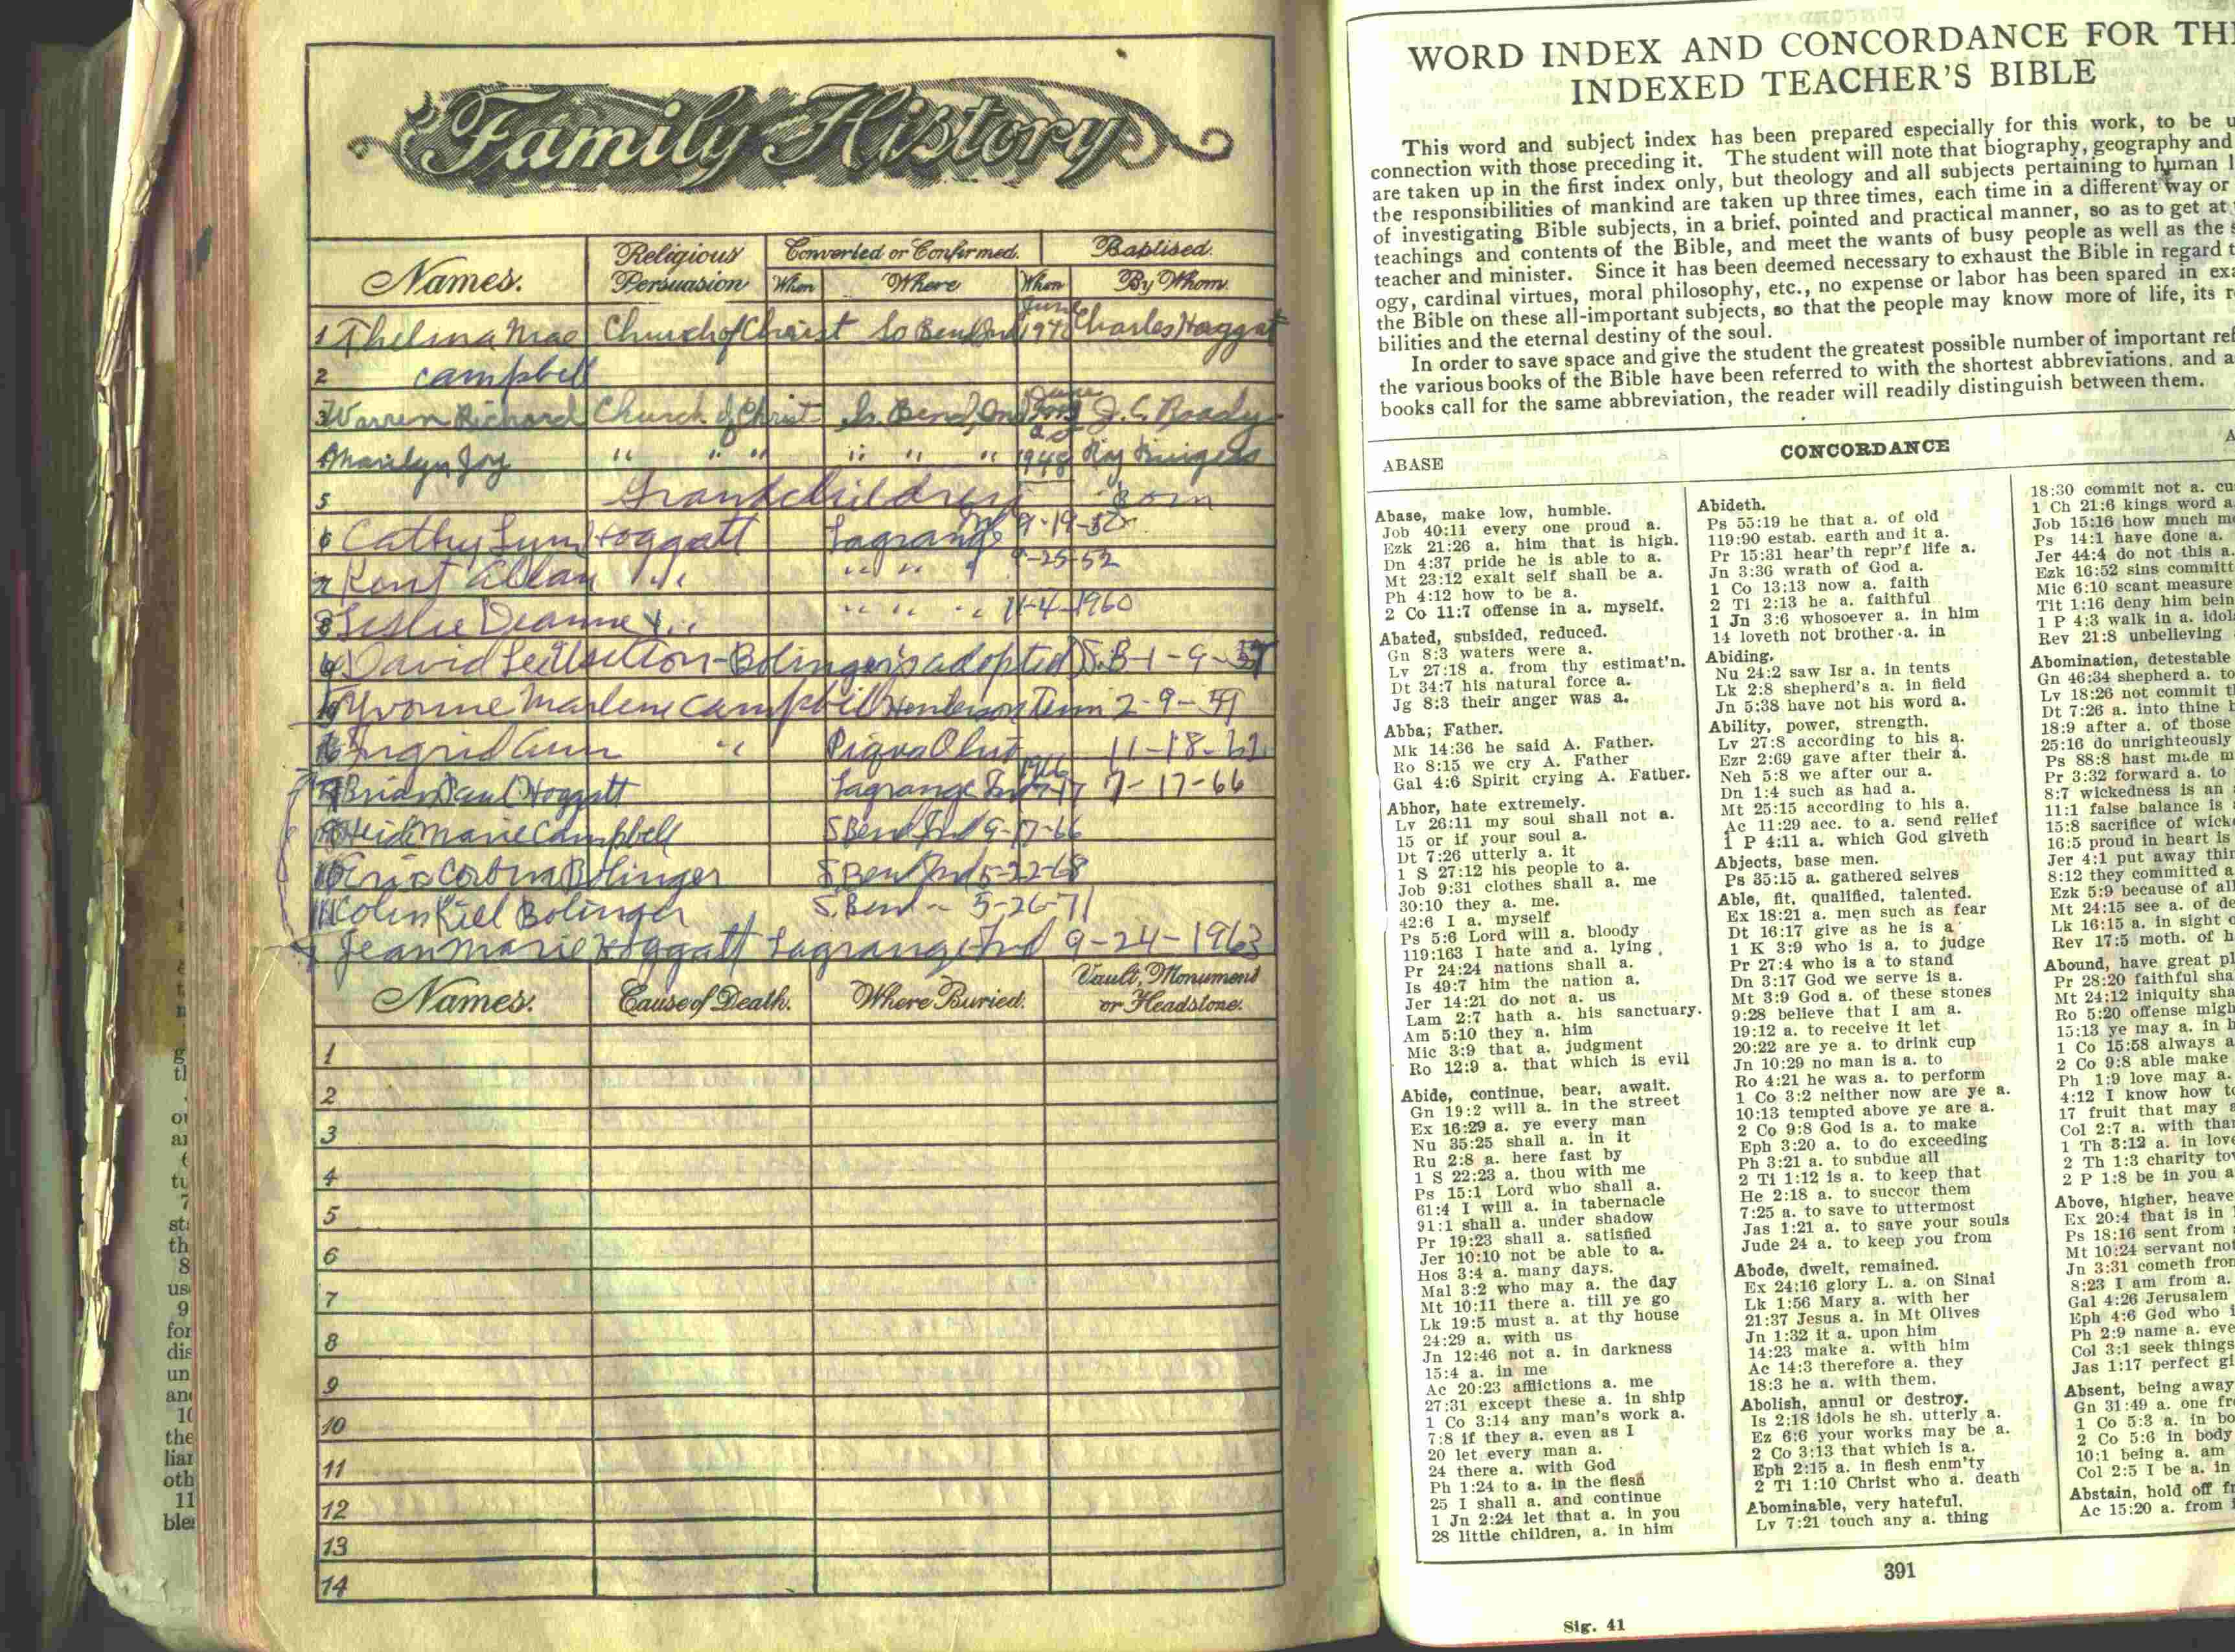 Family History
Names. Religious Persuasion Converted or Confirmed. Baptised.
When Where When By Whom.
June
1 Thelma Mae Church of Christ So Bend Ind 1940 Charles Hoggatt
2 Campbell
June
3 Warren Richard Church of Christ So. Bend, Ind J. C. Roady
4 Marilyn Joy " " " " " " 1948 Roy
5 Grandchildren Born
6 Cathy Lynn Hoggatt Lagrange Ind 9-19-50
7 Kent Allan " " " " 9-25-52
8 Leslie Deanne " " " " " 11-4-1960
David Lee - Bolinger's adopted S.B-1-9-
Yvonne Marlene Campbell Henderson Tenn 2-9-59
Ingrid Ann " Piqua Ohio 11-18-61
Brian Paul Hoggatt Lagrange Ind 7-17-66
Heidi Marie Campbell S Bend Ind 9-17-66
Bolinger S. Bend Ind 5-22-68
Colin Kiel Bolinger S. Bend - 5-26-71
Jean Marie Hoggatt Lagrange Ind 9-24-1963
Names. Cause of Death. Where Buried. Vault, Monument or Headstone.
1
2
3
4
5
6
7
8
9
10
11
12
13
14
WORD INDEX AND CONCORDANCE FOR
INDEXED TEACHER'S BIBLE
This word and subject index has been prepared especially for this work, to be
connection with those preceding it. The student will note that biography, geography and
are taken up in the first index only, but theology and all subjects pertaining to human
the responsibilities of mankind are taken up three times, each time in a different way or
of investigating Bible subjects, in a brief, pointed and practical manner, so as to get at
teachings and contents of the Bible, and meet the wants of busy people as well as the
teacher and minister. Since it has been deemed necessary to exhaust the Bible in regard
ogy, cardinal virtues, moral philosophy, etc., no expense or labor has been spared in
the Bible on these all-important subjects, so that the people may know more of life, its
bilities and the eternal destiny of the soul.
In order to save space and give the student the greatest possible number of important
the various books of the Bible have been referred to with the shortest abbreviations, and
books call for the same abbreviation, the reader will readily distinguish between them.
ABASE CONCORDANCE
Abase, make low, humble.
Job 40:11 every one proud a.
Ezk 21:26 a. him that is high.
Dn 4:37 pride he is able to a.
Mt 23:12 exalt self shall be a.
Ph 4:12 how to be a.
2 Co 11:7 offense in a. myself.
Abated, subsided, reduced.
Gn 8:3 waters were a.
Lv 27:18 a. from thy estimat'n.
Dt 34:7 his natural force a.
Jg 8:3 their anger was a.
Abba; Father.
Mk 14:36 he said A. Father.
Ro 8:15 we cry A. Father
Gal 4:6 Spirit crying A. Father.
Abhor, hate extremely.
Lv 26:11 my soul shall not a.
15 or if your soul a.
Dt 7:26 utterly a. it
1 S 27:12 his people to a.
Job 9:31 clothes shall a. me
30:10 they a. me.
42:6 I a. myself
Ps 5:6 Lord will a. bloody
119:163 I hate and a. lying
Pr 24:24 nations shall a.
Is 49:7 him the nation a.
Jer 14:21 do not a. us
Lam 2:7 hath a. his sanctuary.
Am 5:10 they a. him
Mic 3:9 that a. judgment
Ro 12:9 a. that which is evil
Abide, continue, bear, await.
Gn 19:2 will a. in the street
Ex 16:29 a. ye every man
Nu 35:25 shall a. in it
Ru 2:8 a. here fast by
1 S 22:23 a. thou with me
Ps 15:1 Lord who shall a.
61:4 I will a. in tabernacle
91:1 shall a. under shadow
Pr 19:23 shall a. satisfied
Jer 10:10 not be able to a.
Hos 3:4 a. many days.
Mal 3:2 who may a. the day
Mt 10:11 there a. till ye go
Lk 19:5 must a. at thy house
24:29 a. with us
Jn 12:46 not a. in darkness
15:4 a. in me
Ac 20:23 afflictions a. me
27:31 except these a. in ship
1 Co 3:14 any man's work a.
7:8 if they a. even as I
20 let every man a.
24 there a. with God
Ph 1:24 to a. in the flesh
25 I shall a. and continue
1 Jn 2:24 let that a. in you
28 little children, a. in him
Abideth.
Ps 55:19 he that a. of old
119:90 estab. earth and it a.
Pr 15:31 hear'th repr'f life a.
Jn 3:36 wrath of God a.
1 Co 13:13 now a. faith
2 Ti 2:13 he a. faithful
1 Jn 3:6 whosoever a. in him
14 loveth not brother a. in
Abiding.
Nu 24:2 saw Isr a. in tents
Lk 2:8 shepherd's a. in field
Jn 5:38 have not his word a.
Ability, power, strength.
Lv 27:8 according to his a.
Ezr 2:69 gave after their a.
Neh 5:8 we after our a.
Dn 1:4 such as had a.
Mt 25:15 according to his a.
Ac 11:29 acc. to a. send relief
1 P 4:11 a. which God giveth
Abjects, base men.
Ps 35:15 a. gathered selves
Able, fit, qualified, talented.
Ex 18:21 a. men such as fear
Dt 16:17 give as he is a
1 K 3:9 who is a. to judge
Pr 27:4 who is a to stand
Dn 3:17 God we serve is a.
Mt 3:9 God a. of these stones
9:28 believe that I am a.
19:12 a. to receive it let
20:22 are ye a. to drink cup
Jn 10:29 no man is a. to
Ro 4:21 he was a. to perform
1 Co 3:2 neither now are ye a.
10:13 tempted above ye are a.
2 Co 9:8 God is a. to make
Eph 3:20 a. to do exceeding
Ph 3:21 a. to subdue all
2 Ti 1:12 is a. to keep that
He 2:18 a. to succor them
7:25 a. to save to uttermost
Jas 1:21 a. to save your souls
Jude 24 a. to keep you from
Abode, dwelt, remained.
Ex 24:16 glory L. a. on Sinai
Lk 1:56 Mary a. with her
21:37 Jesus a. in Mt Olives
Jn 1:32 it a. upon him
14:23 make a. with him
Ac 14:3 therefore a. they
18:3 he a. with them.
Abolish, annul or destroy.
Is 2:18 idols he sh. utterly a.
Ez 6:6 your works may be a.
2 Co 3:13 that which is a.
Eph 2:15 a. in flesh enm'ty
2 Ti 1:10 Christ who a. death
Abominable, very hateful.
Lv 7:21 touch any a. thing
18:30 commit not a.
1 Ch 21:6 kings word a.
Job 15:16 how much
Ps 14:1 have done a.
Jer 44:4 do not this a.
Ezk 16:52 sins
Mic 6:10 scant measure
Tit 1:16 deny him
1 P 4:3 walk in a.
Rev 21:8 unbelieving
Abomination, detestable
Gn 46:34 shepherd a. to
Lv 18:26 not commit
Dt 7:26 a. into thine
18:9 after a. of those
25:16 do unrighteously
Ps 88:8 hast made
Pr 3:32 forward a. to
8:7 wickedness is an
11:1 false balance is
15:8 sacrifice of
16:5 proud in heart is
Jer 4:1 put away
8:12 they committed a
Ezk 5:9 because of
Mt 24:15 see a. of
Lk 16:15 a. in sight
Rev 17:5 moth. of
Abound, have great
Pr 28:20 faithful
Mt 24:12 iniquity
Ro 5:20 offense
15:13 ye may a. in
1 Co 15:58 always
2 Co 9:8 able make
Ph 1:9 love may a.
4:12 I know how
17 fruit that may
Col 2:7 a. with
1 Th 3:12 a. in
2 Th 1:3 charity
2 P 1:8 be in you
Above, higher,
Ex 20:4 that is in
Ps 18:16 sent from
Mt 10:24 servant
Jn 3:31 cometh
8:23 I am from a.
Gal 4:26 Jerusalem
Eph 4:6 God who
Ph 2:9 name a.
Col 3:1 seek things
Jas 1:17 perfect
Absent, being away
Gn 31:49 a. one
1 Co 5:3 a. in
2 Co 5:6 in body
10:1 being a. am
Col 2:5 I be a. in
Abstain, hold off
Ac 15:20 a. from
391
Sig. 41